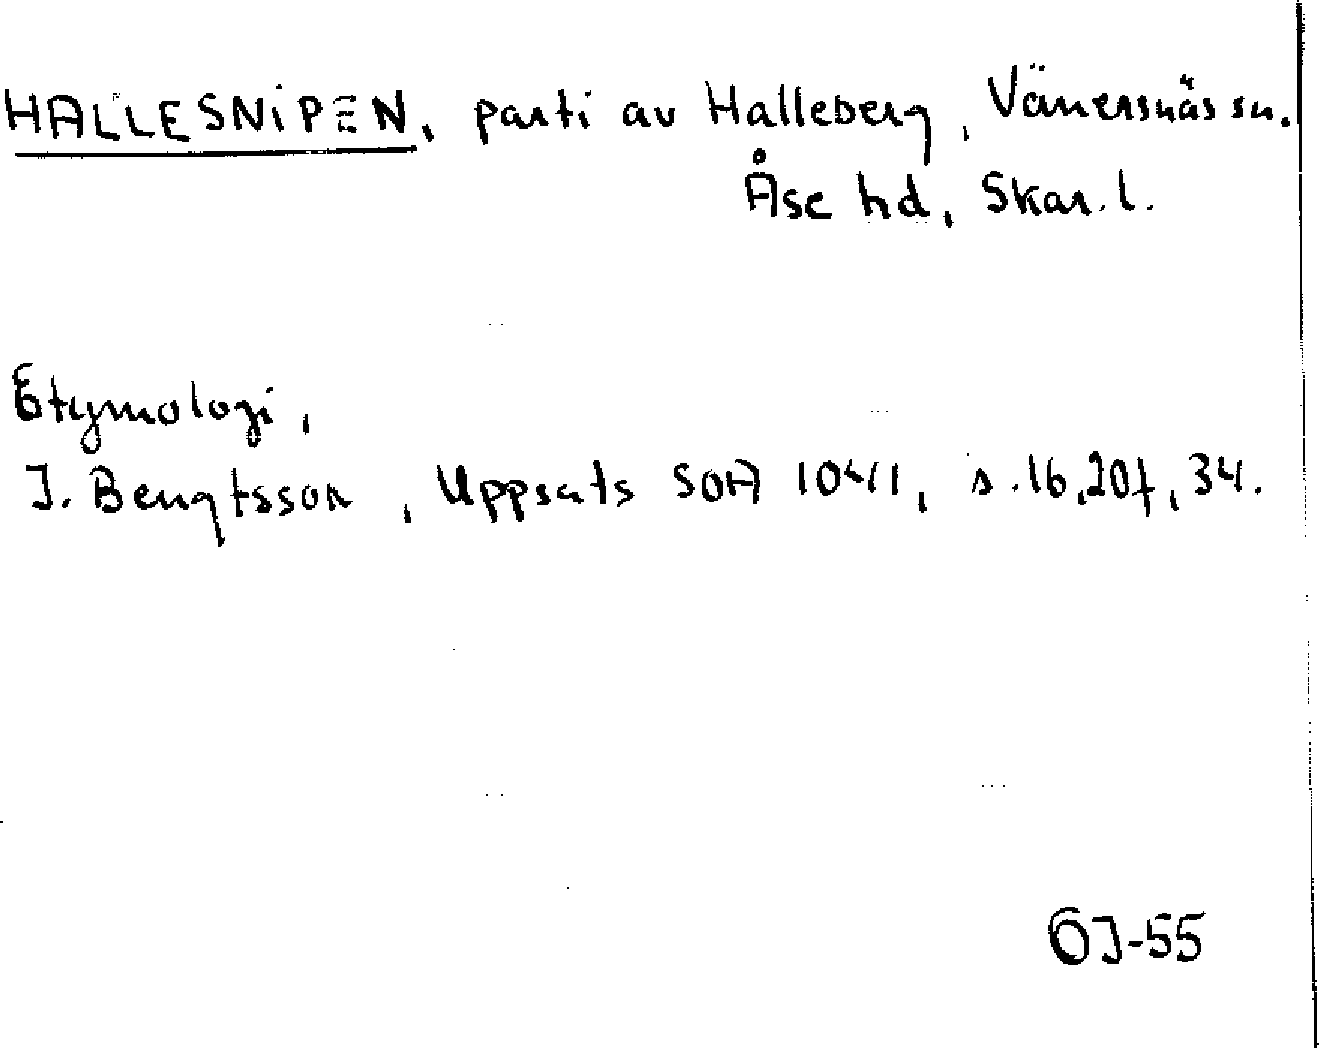 HALLESNIPEN, parti av Halleberg, Vänersnäs sn.
Åse hd, Skar. l.
Etymologi,
I. Bengtsson, Uppsats SOA 1041, s. 16, 20f, 34.
ÖJ-55